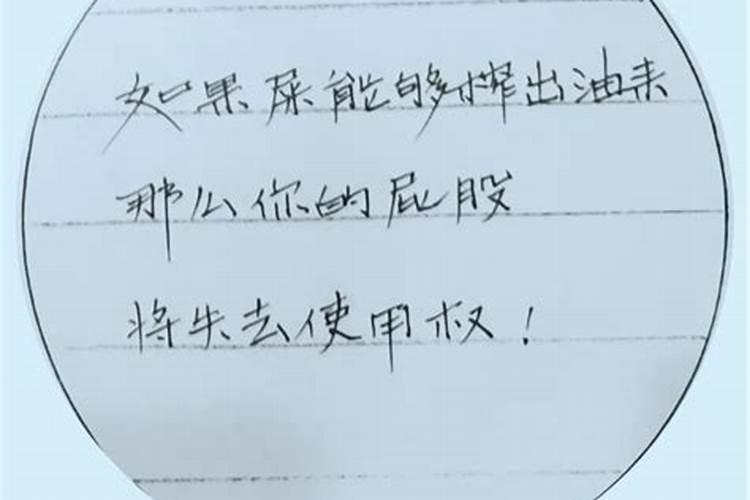 如果屎能够榨出油来
那么你的屁股
将失去使用权！